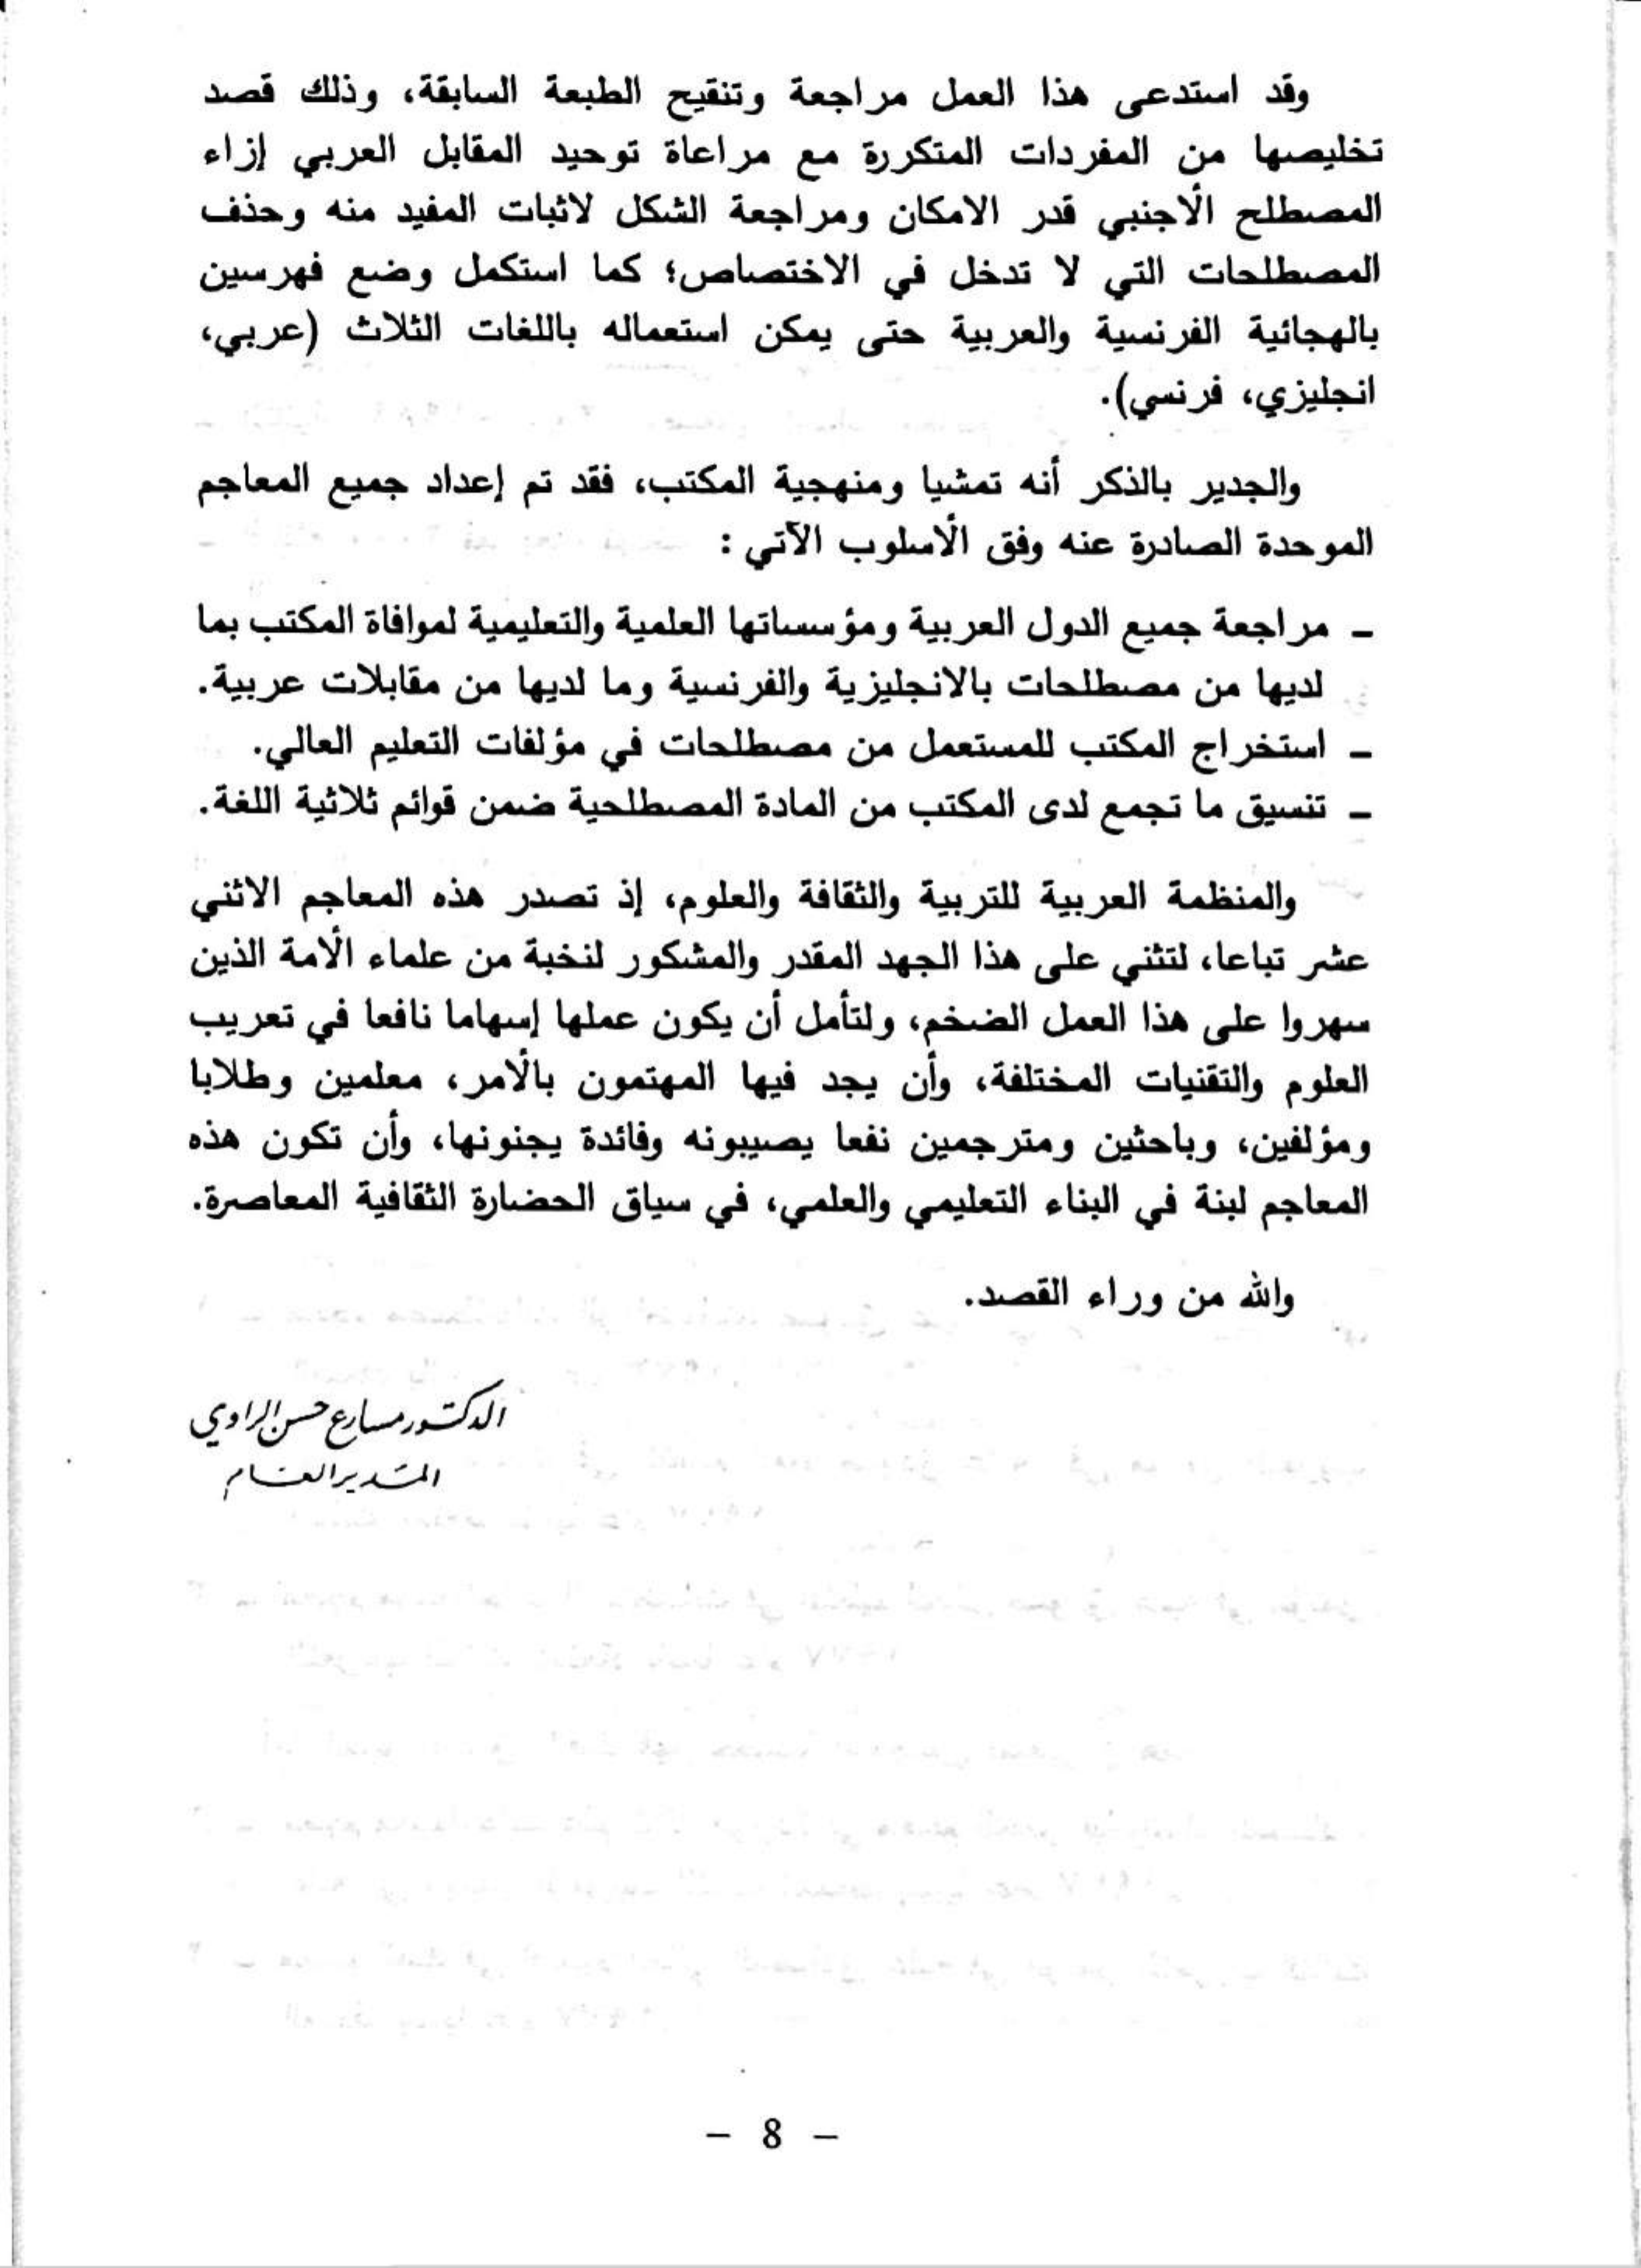 وقد استدعى هذا العمل مراجعة وتنقيح الطبعة السابقة، وذلك قصد
تخليصها من المفردات المتكررة مع مراعاة توحيد المقابل العربي إزاء
المصطلح الأجنبي قدر الامكان ومراجعة الشكل لاثبات المفيد منه وحذف
المصطلحات التي لا تدخل في الاختصاص؛ كما استكمل وضع فهرسين
بالهجائية الفرنسية والعربية حتى يمكن استعماله باللغات الثلاث (عربي،
انجليزي، فرنسي).
والجدير بالذكر أنه تمشيا ومنهجية المكتب، فقد تم إعداد جميع المعاجم
الموحدة الصادرة عنه وفق الأسلوب الآتي :
ـ مراجعة جميع الدول العربية ومؤسساتها العلمية والتعليمية لموافاة المكتب بما
لديها من مصطلحات بالانجليزية والفرنسية وما لديها من مقابلات عربية.
ـ استخراج المكتب للمستعمل من مصطلحات في مؤلفات التعليم العالي.
ـ تنسيق ما تجمع لدى المكتب من المادة المصطلحية ضمن قوائم ثلاثية اللغة.
والمنظمة العربية للتربية والثقافة والعلوم، إذ تصدر هذه المعاجم الاثني
عشر تباعا، لتثني على هذا الجهد المقدر والمشكور لنخبة من علماء الأمة الذين
سهروا على هذا العمل الضخم، ولتأمل أن يكون عملها إسهاما نافعا في تعريب
العلوم والتقنيات المختلفة، وأن يجد فيها المهتمون بالأمر، معلمين وطلابا
ومؤلفين، وباحثين ومترجمين نفعا يصيبونه وفائدة يجنونها، وأن تكون هذه
المعاجم لبنة في البناء التعليمي والعلمي، في سياق الحضارة الثقافية المعاصرة.
والله من وراء القصد.
الدكتور مسارع حسن الراوي
المدير العام
– 8 –